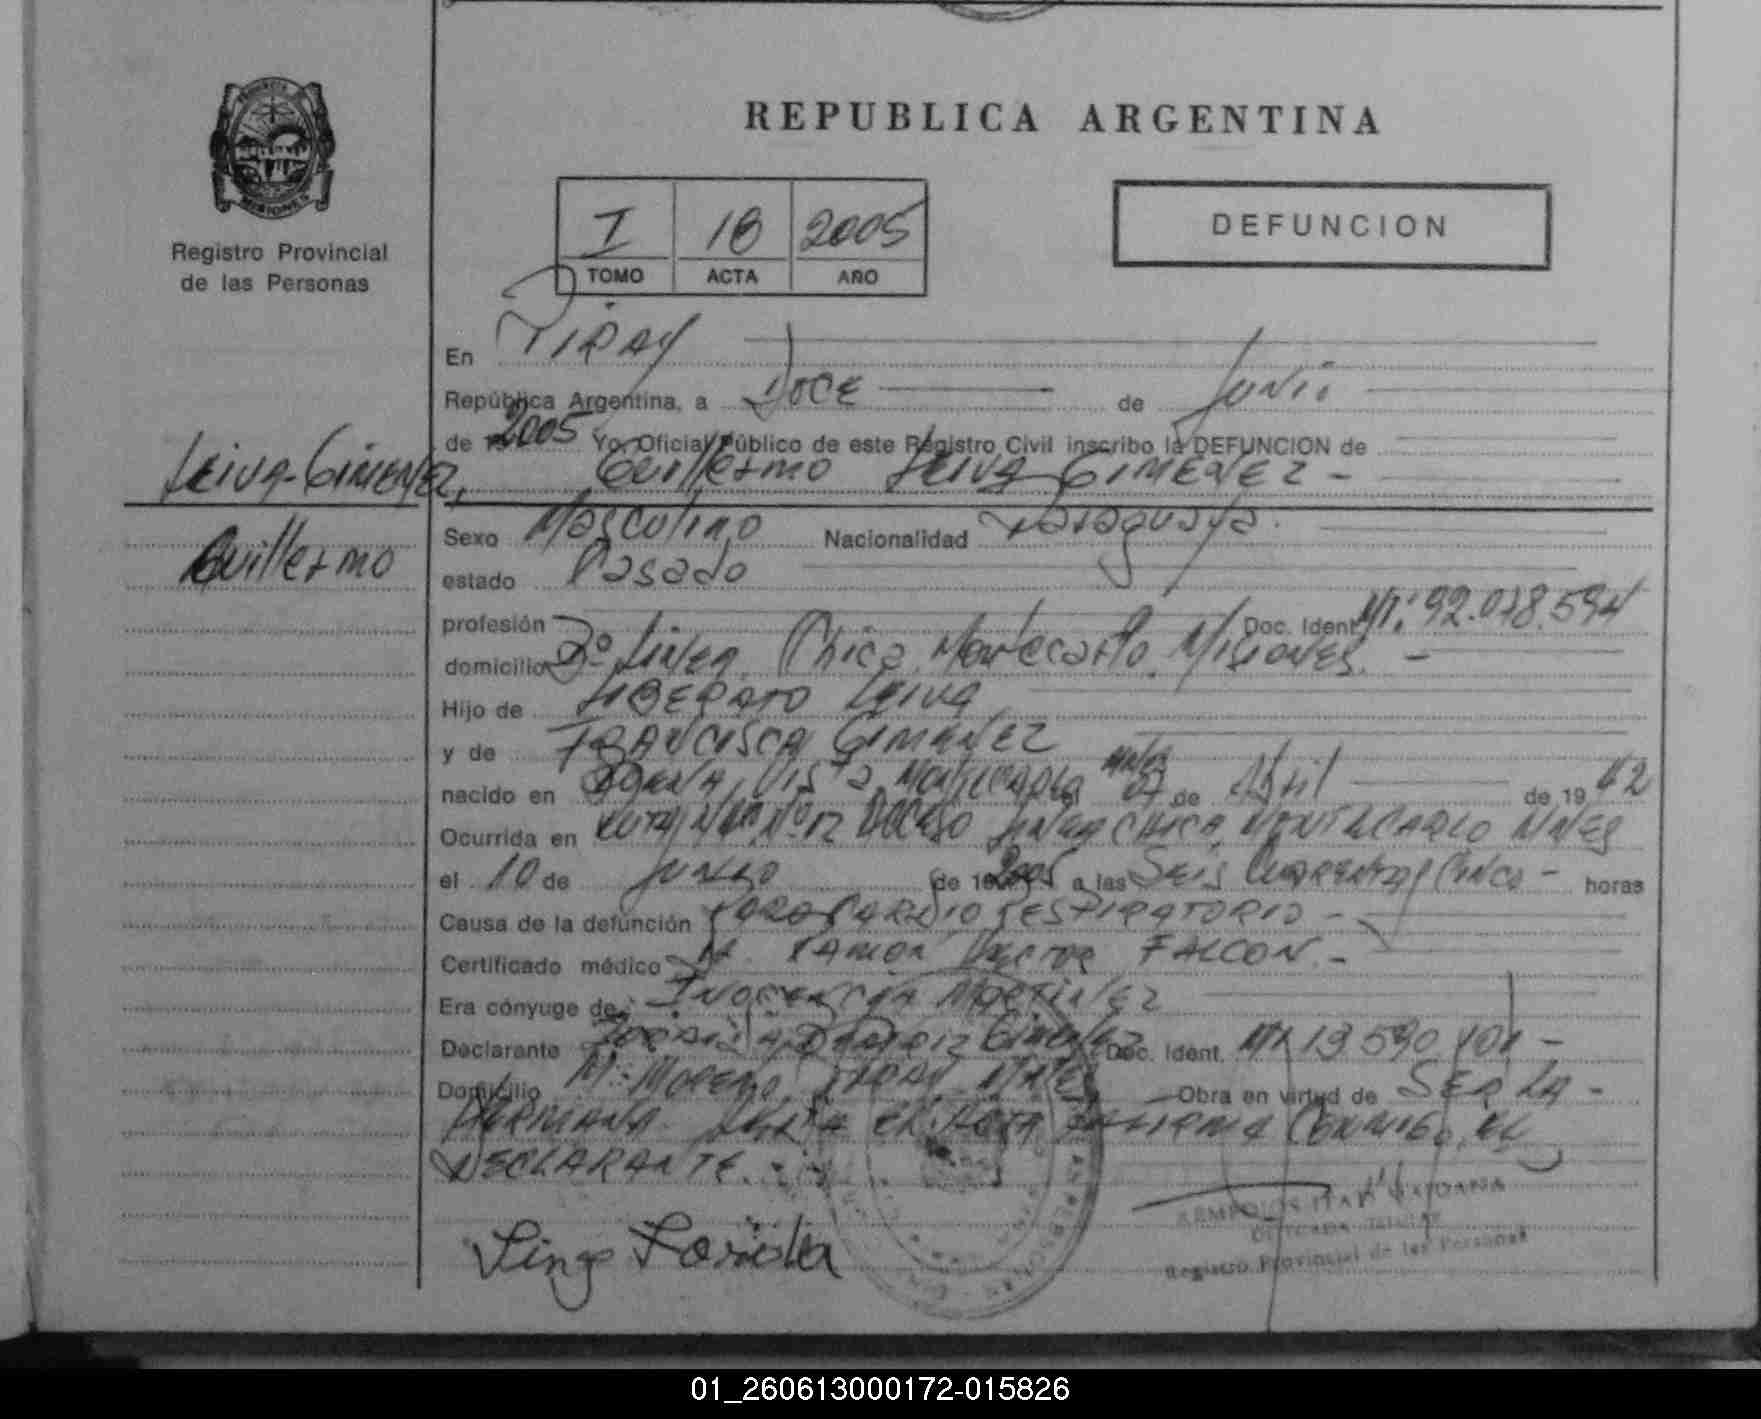 REPUBLICA ARGENTINA
MISIONES
Registro Provincial
de las Personas
I 18 2005
TOMO ACTA AÑO
DEFUNCION
En PIRAY
República Argentina, a DOCE de Junio
de 19 2005 Yo, Oficial Público de este Registro Civil inscribo la DEFUNCION de
Leiva-Gimenez, Guillermo Leiva GIMENEZ -
Guillermo
Sexo Masculino Nacionalidad Paraguaya.
estado Casado
profesión Doc. Ident. MI: 92.078.594
domicilio Línea Chica Montecarlo Misiones. -
Hijo de LIBERATO Leiva
y de FRANCISCA GIMENEZ
nacido en Vista Montecarlo 07 de Abril de 19 42
Ocurrida en Ruta Nº 12 Acceso LINEA CHICA MONTECARLO MNES
el 10 de JUNIO de 19 2005 a las Seis Cuarenta y Cinco - horas
Causa de la defunción PARO CARDIO RESPIRATORIO -
Certificado médico Dr. RAMON FALCON. -
Era cónyuge de: INOCENCIA MARTINEZ
Declarante Gimenez Doc. Ident. MI 13.590.101 -
Domicilio M. MORENO PIRAY MNES Obra en virtud de SER LA -
HERMANA. EL ACTA FIRMA CONMIGO, EL
DECLARANTE.
Registro Provincial de las Personas
01_260613000172-015826